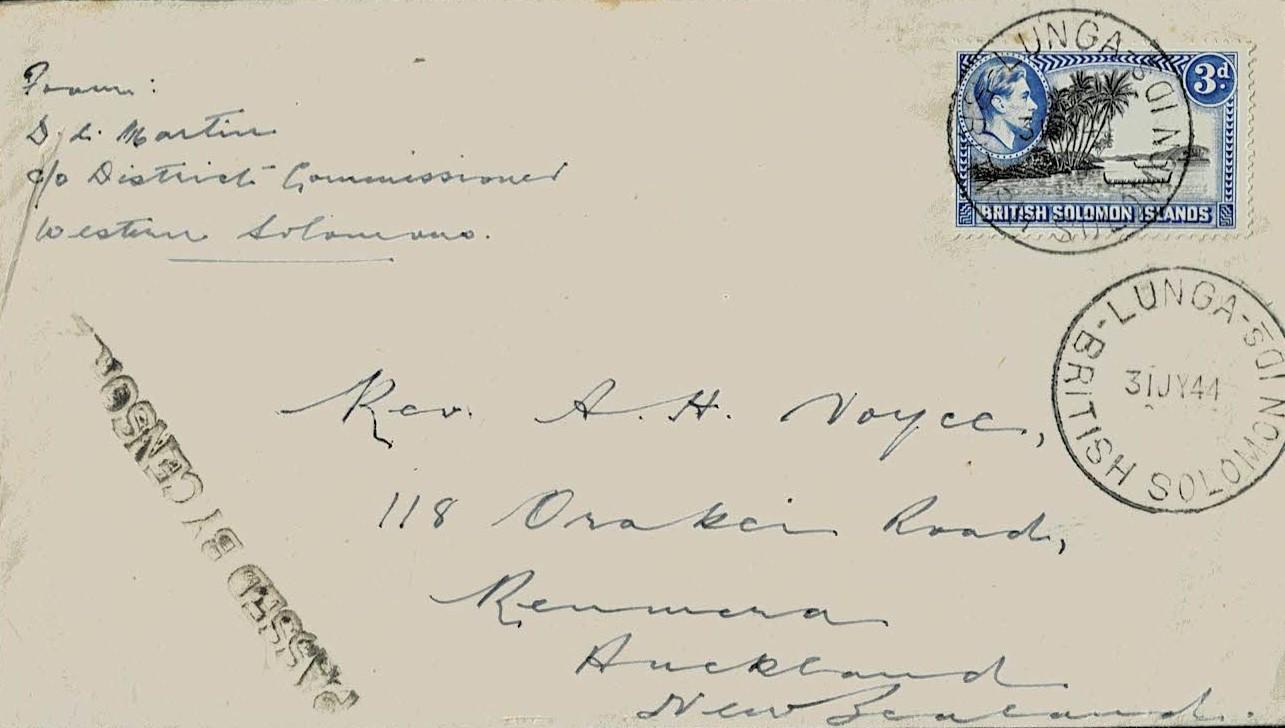 From:
D. L. Martin
c/o District Commissioner
Western Solomons.
3d.
BRITISH SOLOMON ISLANDS
LUNGA
LUNGA
BRITISH SOLOMON IDS
31 JY 44
PASSED BY CENSOR
Rev. A. H. Voyce,
118 Orakei Road,
Remuera
Auckland
New Zealand.